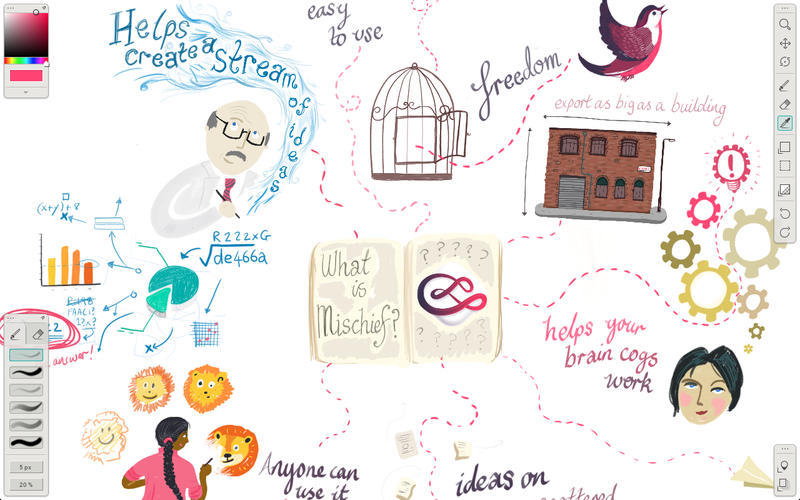 easy
to use
Helps
create a stream
of ideas
freedom
export as big as a building
(x+y)+8
x
R222xG
√de466a
What
is
Mischief?
? ? ? ? ?
? ? ? ? ?
!
helps your
brain cogs
work
answer!
x
5 px
20 %
Anyone can
use it
ideas on
scattered